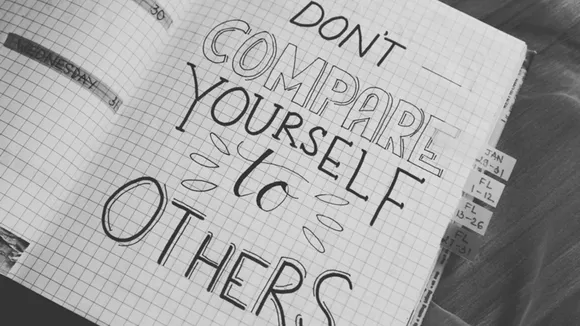 30
WEDNESDAY 31
DON'T
COMPARE
YOURSELF
to
OTHERS
JAN
FL
1-12
FL
13-26
FL